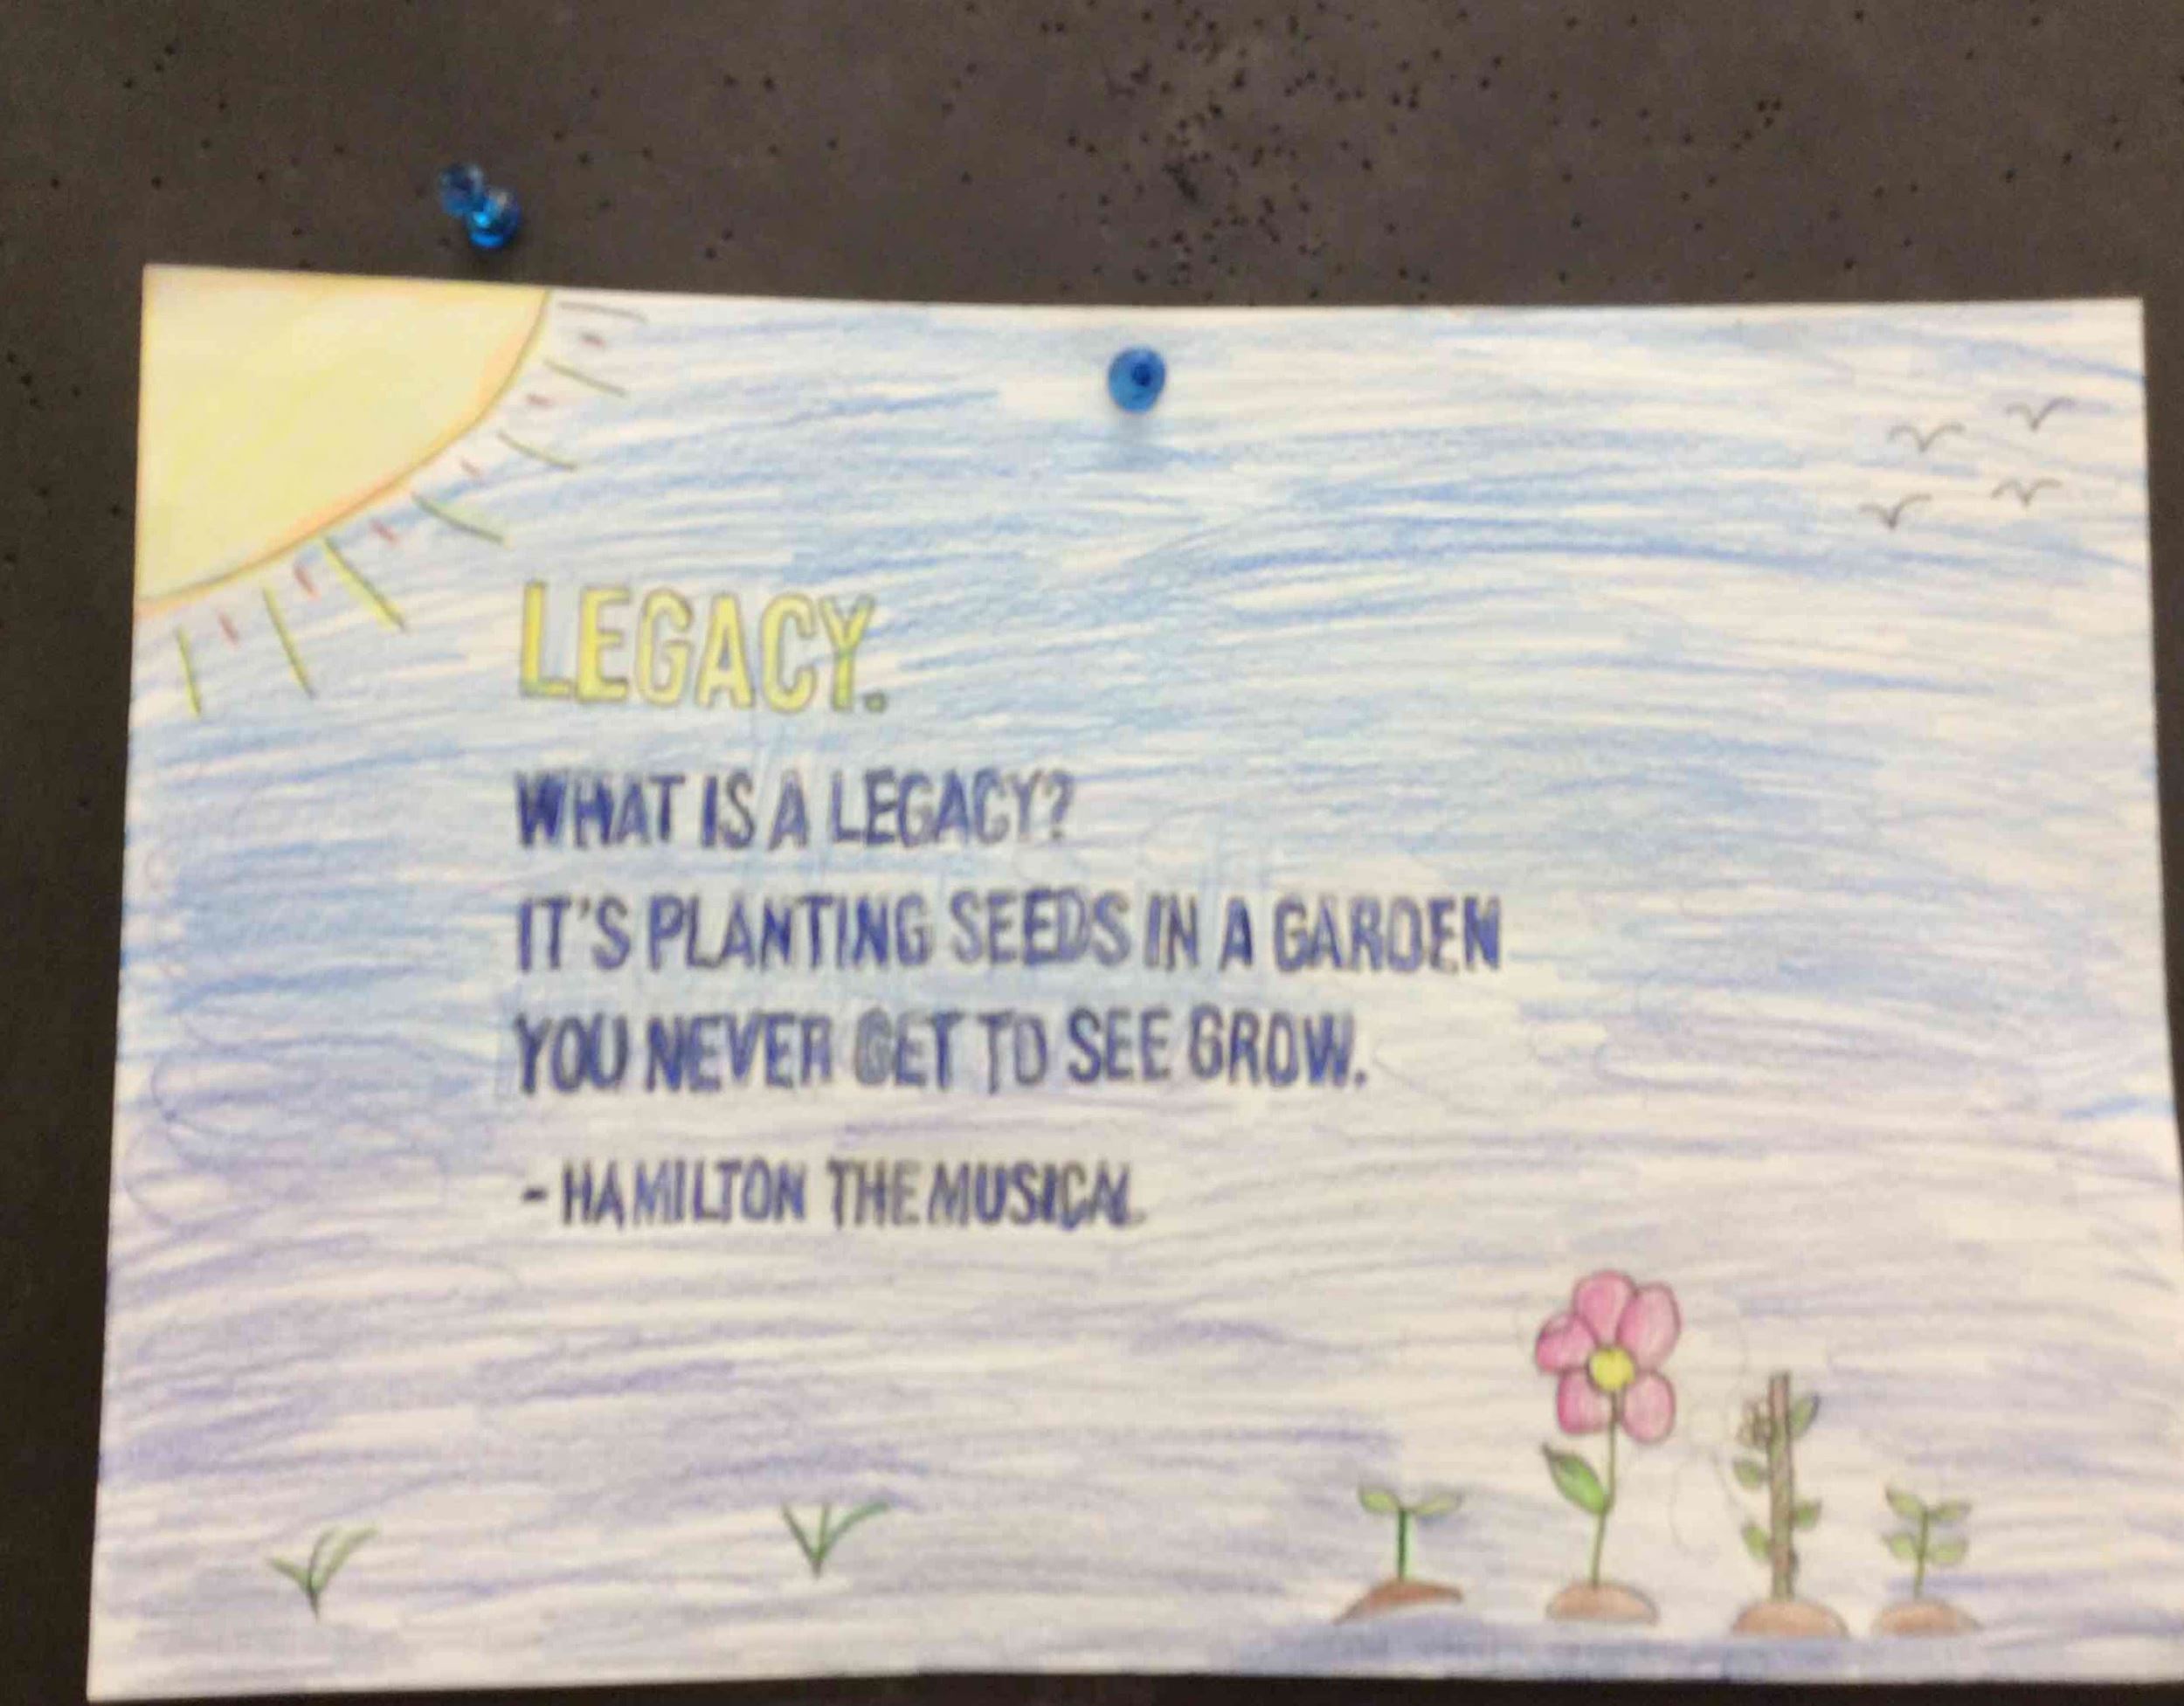 LEGACY.
WHAT IS A LEGACY?
IT'S PLANTING SEEDS IN A GARDEN
YOU NEVER GET TO SEE GROW.
- HAMILTON THE MUSICAL